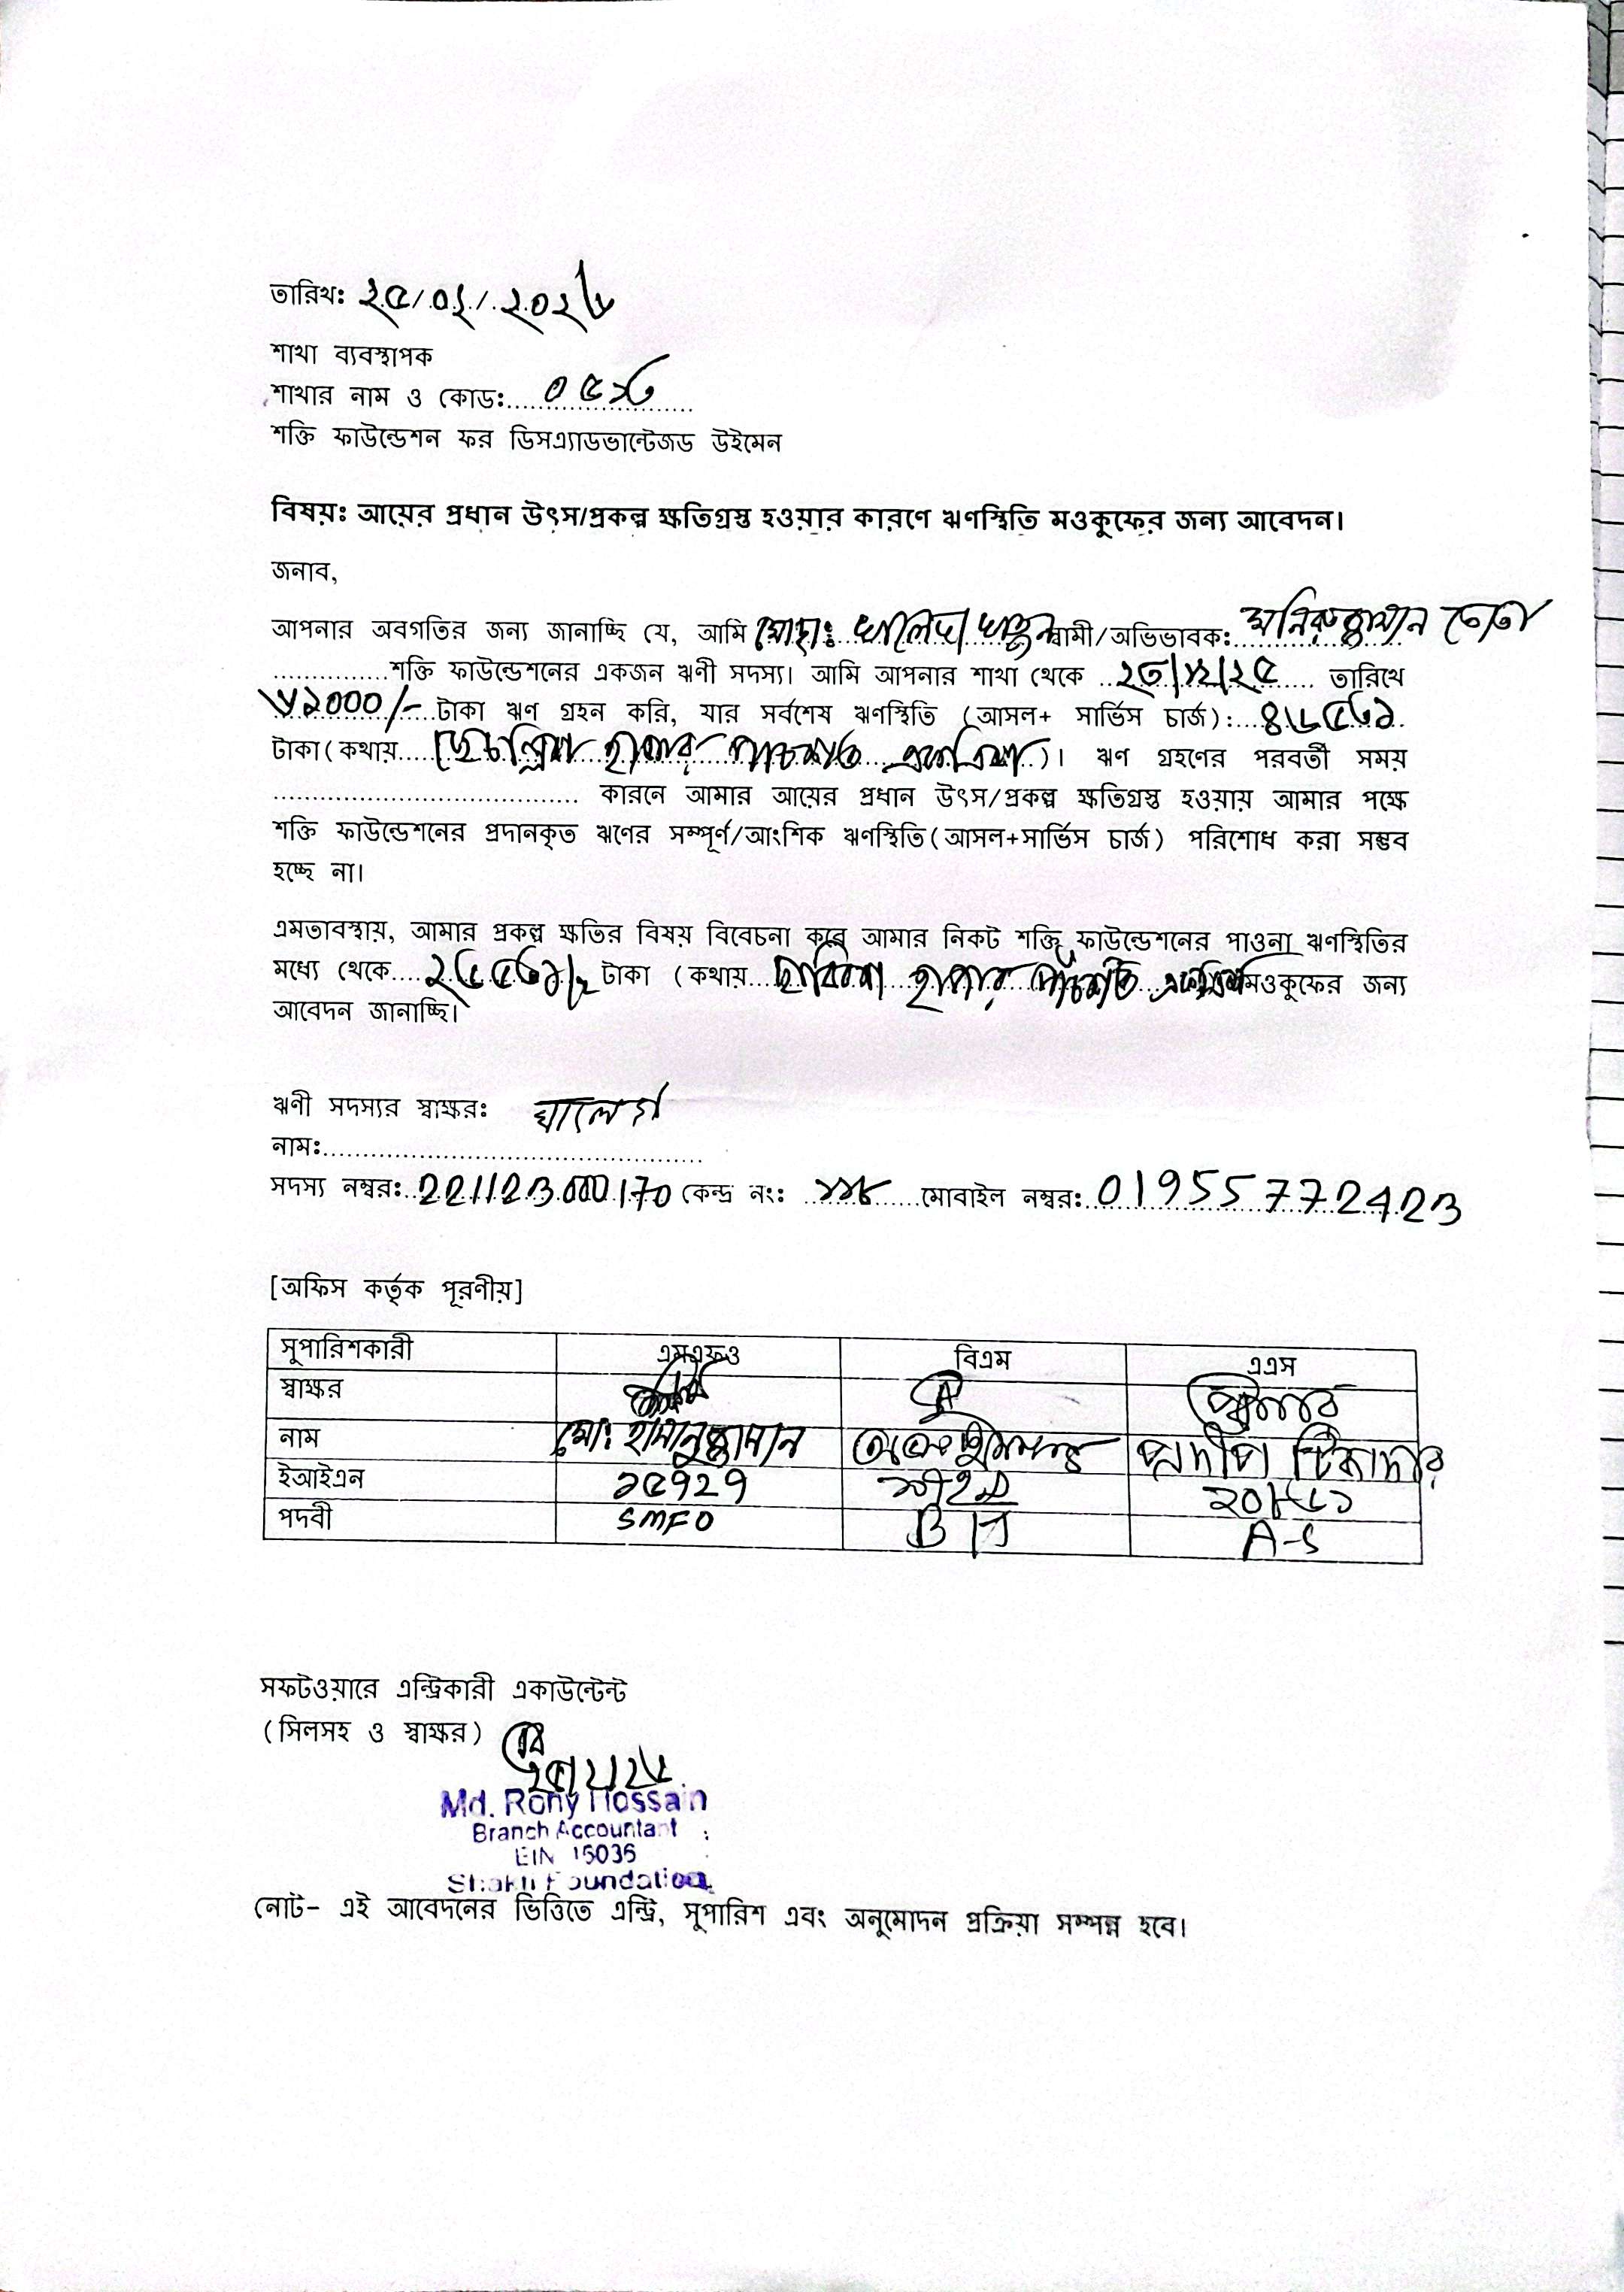 তারিখঃ ২৫/০২/২০২৬
শাখা ব্যবস্থাপক
শাখার নাম ও কোডঃ.... ০৫২৩
শক্তি ফাউন্ডেশন ফর ডিসএ্যাডভান্টেজড উইমেন
বিষয়ঃ আয়ের প্রধান উৎস/প্রকল্প ক্ষতিগ্রস্ত হওয়ার কারণে ঋণস্থিতি মওকুফের জন্য আবেদন।
জনাব,
আপনার অবগতির জন্য জানাচ্ছি যে, আমি মোছাঃ খালেদা খাতুন স্বামী/অভিভাবক: মনিরুজ্জামান
শক্তি ফাউন্ডেশনের একজন ঋণী সদস্য। আমি আপনার শাখা থেকে ..২৩/১২/২৫.... তারিখে
৬২০০০/- টাকা ঋণ গ্রহন করি, যার সর্বশেষ ঋণস্থিতি (আসল+ সার্ভিস চার্জ):...৪৬৫৩১..
টাকা(কথায়.... ছেচল্লিশ হাজার পাচশত একত্রিশ)। ঋণ গ্রহণের পরবর্তী সময়
কারনে আমার আয়ের প্রধান উৎস/প্রকল্প ক্ষতিগ্রস্ত হওয়ায় আমার পক্ষে
শক্তি ফাউন্ডেশনের প্রদানকৃত ঋণের সম্পূর্ণ/আংশিক ঋণস্থিতি(আসল+সার্ভিস চার্জ) পরিশোধ করা সম্ভব
হচ্ছে না।
এমতাবস্থায়, আমার প্রকল্প ক্ষতির বিষয় বিবেচনা করে আমার নিকট শক্তি ফাউন্ডেশনের পাওনা ঋণস্থিতির
মধ্যে থেকে.... ২৬৫৩১/= টাকা (কথায়... ছাব্বিশ হাজার পাঁচশত একত্রিশ মওকুফের জন্য
আবেদন জানাচ্ছি।
ঋণী সদস্যর স্বাক্ষরঃ খালেদা
নামঃ
সদস্য নম্বরঃ 221123000170 কেন্দ্র নং: ১১৮ মোবাইল নম্বরঃ 019557772423
[অফিস কর্তৃক পূরণীয়]
সুপারিশকারী এমএফও বিএম এএস
স্বাক্ষর
নাম মোঃ হাসানুজ্জামান প্রদীপ টিকাদার
ইআইএন ১৫৭২৭
পদবী SMFO BM A-S
সফটওয়ারে এন্ট্রিকারী একাউন্টেন্ট
(সিলসহ ও স্বাক্ষর)
২৫/২/২৬
Md. Rony Hossain
Branch Accountant
EIN 15035
Shakti Foundation
নোট- এই আবেদনের ভিত্তিতে এন্ট্রি, সুপারিশ এবং অনুমোদন প্রক্রিয়া সম্পন্ন হবে।